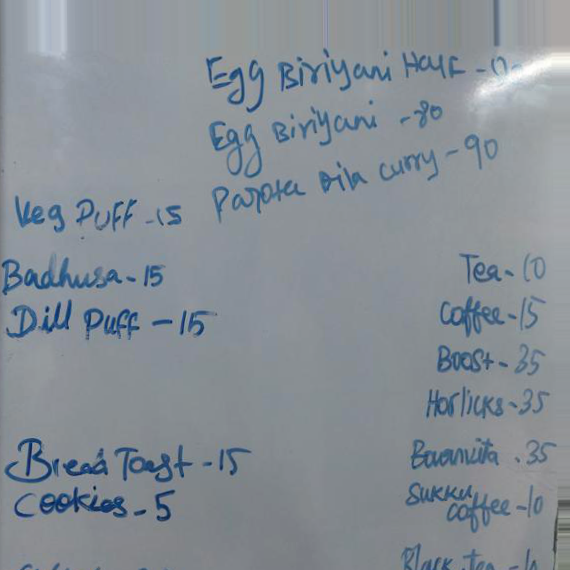 Egg Biriyani Half -
Egg Biriyani - 80
Parota with curry - 90
Veg Puff - 15
Badhusa - 15
Dill Puff - 15
Bread Toast - 15
Cookies - 5
Tea - 10
Coffee - 15
Boost - 35
Horlicks - 35
. 35
Sukku
coffee - 10
Black tea -